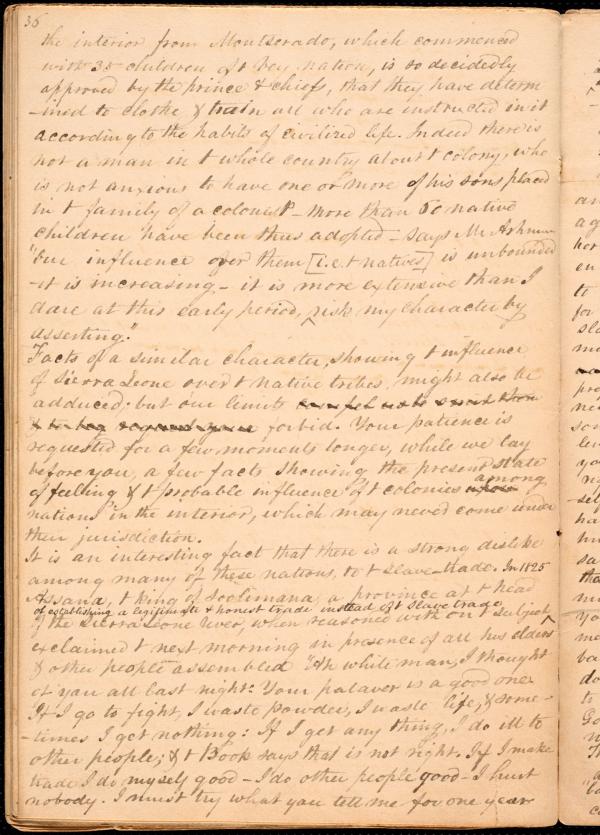 36
the interior from Montserado, which commenced
with 35 children of t Vey nation, is so decidedly
approved by the prince & chiefs, that they have determ
-ined to clothe & train all who are instructed in it
according to the habits of civilized life. Indeed there is
not a man in t whole country about t colony, who
is not anxious to have one or more of his sons placed
in t family of a colonist - more than 60 native
children have been thus adopted - says Mr Ashmun
"our influence over them [i.e. t natives] is unbounded
-it is increasing - it is more extensive than I
dare at this early period, ^ risk my character by
asserting."
Facts of a similar character, showing t influence
of Sierra Leone over t native tribes, might also be
adduced; but our limits
forbid. Your patience is
requested for a few moments longer, while we lay
before you, a few facts showing the present state
of feeling & t probable influence of t colonies among
nations in the interior, which may never come under
their jurisdiction.
It is an interesting fact that there is a strong dislike
among many of these nations, to t slave-trade. In 1825
Assana, t king of Soolimana, a province at t head
of establishing a legitimate & honest trade instead of t slave trade,
of the Sierra Leone river, when reasoned with on t subject ^
exclaimed t next morning in presence of all his elders
& other people assembled "Ah white man, I thought
of you all last night. Your palaver is a good one.
If I go to fight, I waste powder, I waste life, & some-
-times I get nothing: If I get any thing, I do ill to
other people; & t Book says that is not right. If I make
trade I do myself good - I do other people good - I hurt
nobody. I must try what you tell me for one year